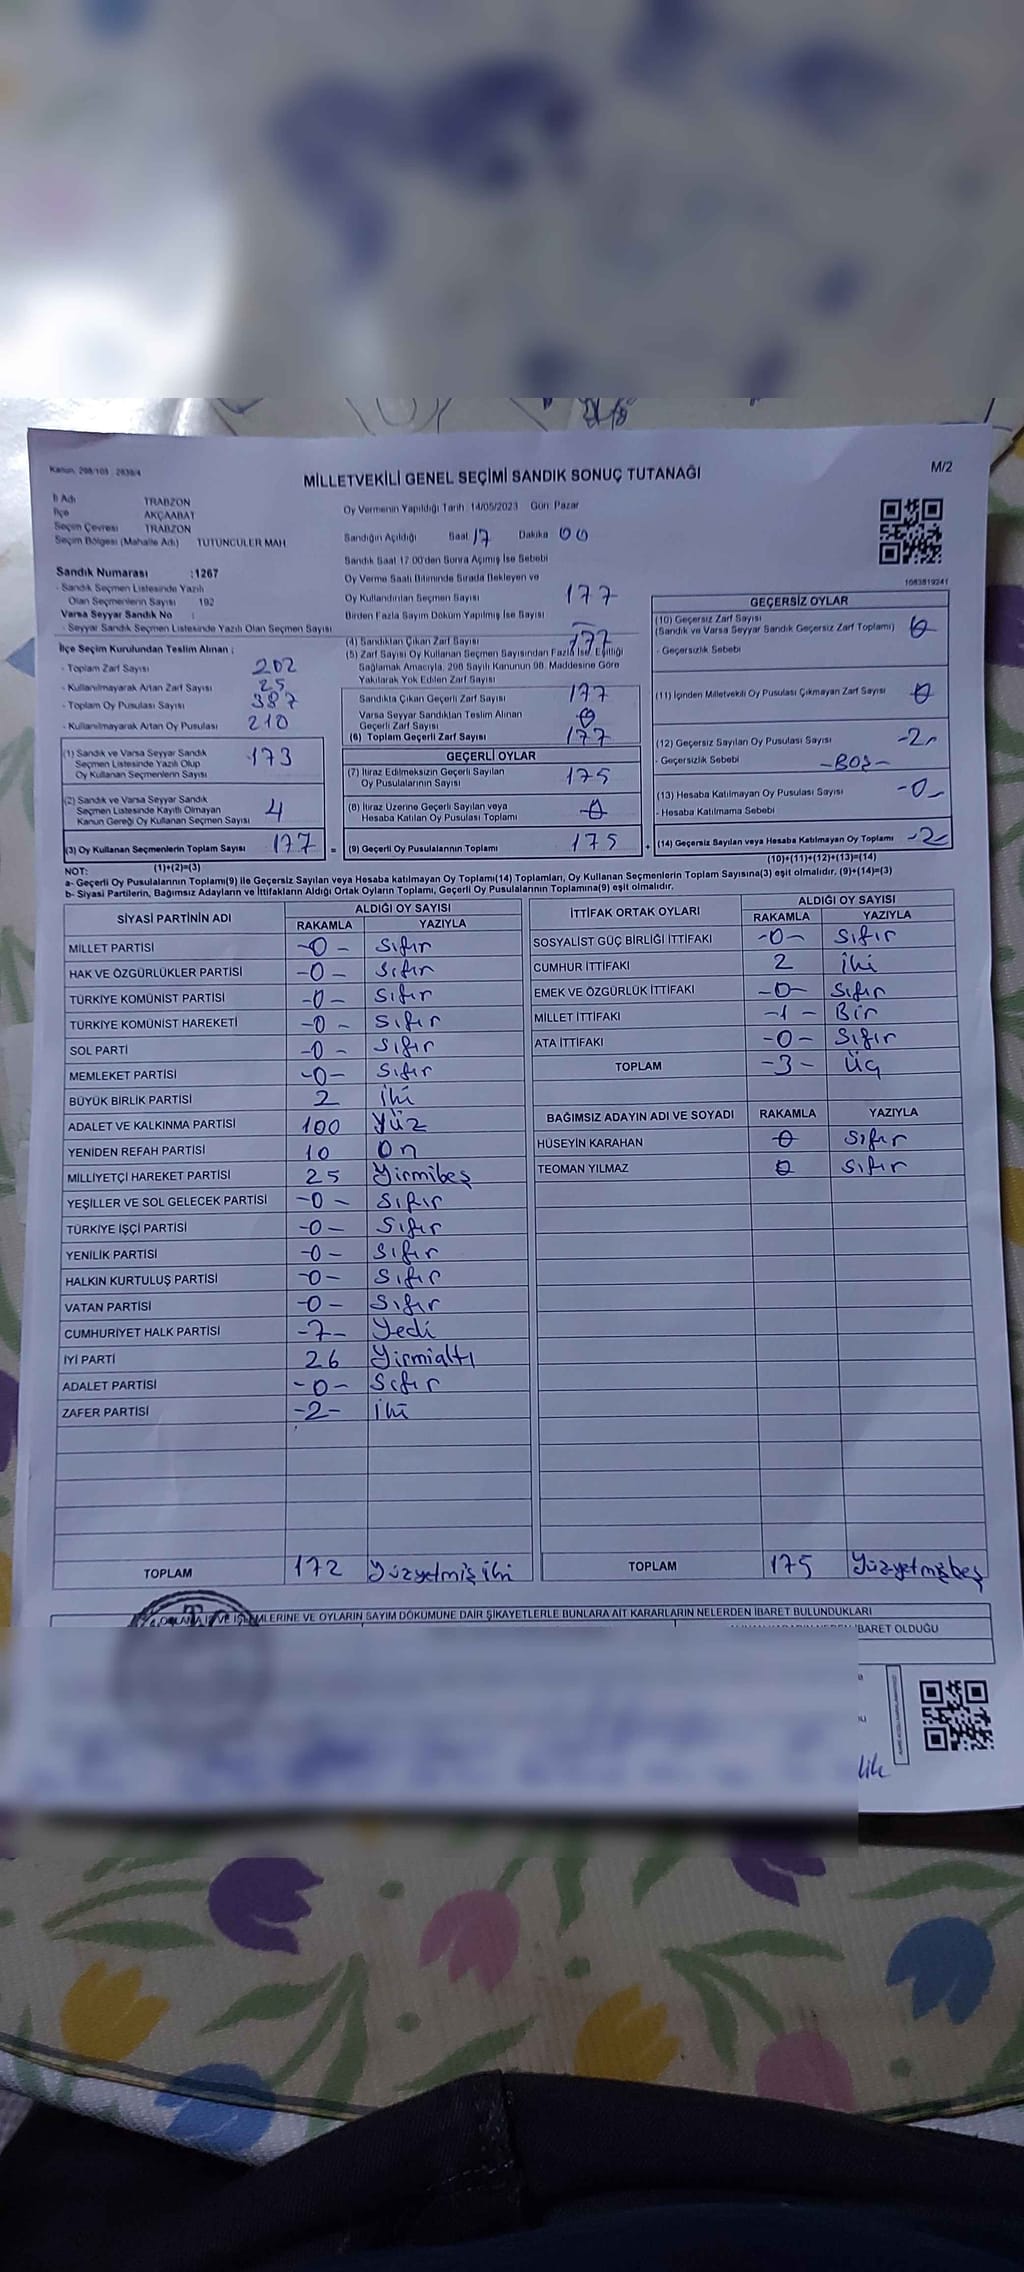 Kanun: 298/103 : 2839/4
MİLLETVEKİLİ GENEL SEÇİMİ SANDIK SONUÇ TUTANAĞI
M/2
İl Adı TRABZON
İlçe AKÇAABAT
Seçim Çevresi TRABZON
Seçim Bölgesi (Mahalle Adı) TÜTÜNCÜLER MAH
Oy Vermenin Yapıldığı Tarih :14/05/2023 Gün: Pazar
Sandığın Açıldığı Saat 17 Dakika 00
Sandık Saat 17:00'den Sonra Açımış İse Sebebi
Sandık Numarası :1267
- Sandık Seçmen Listesinde Yazılı
Olan Seçmenlerin Sayısı 192
Varsa Seyyar Sandık No :
- Seyyar Sandık Seçmen Listesinde Yazılı Olan Seçmen Sayısı
Oy Verme Saati Bitiminde Sırada Bekleyen ve
Oy Kullandırılan Seçmen Sayısı 177
Birden Fazla Sayım Döküm Yapılmış İse Sayısı
1083819241
İlçe Seçim Kurulundan Teslim Alınan ;
- Toplam Zarf Sayısı 202
- Kullanılmayarak Artan Zarf Sayısı 25
- Toplam Oy Pusulası Sayısı 387
- Kullanılmayarak Artan Oy Pusulası 210
(1) Sandık ve Varsa Seyyar Sandık
Seçmen Listesinde Yazılı Olup
Oy Kullanan Seçmenlerin Sayısı 173
(2) Sandık ve Varsa Seyyar Sandık
Seçmen Listesinde Kayıtlı Olmayan
Kanun Gereği Oy Kullanan Seçmen Sayısı 4
(3) Oy Kullanan Seçmenlerin Toplam Sayısı 177
(1)+(2)=(3)
(4) Sandıktan Çıkan Zarf Sayısı 177
(5) Zarf Sayısı Oy Kullanan Seçmen Sayısından Fazla İse, Eşitliği
Sağlamak Amacıyla, 298 Sayılı Kanunun 98. Maddesine Göre
Yakılarak Yok Edilen Zarf Sayısı
Sandıkta Çıkan Geçerli Zarf Sayısı 177
Varsa Seyyar Sandıktan Teslim Alınan
Geçerli Zarf Sayısı 0
(6) Toplam Geçerli Zarf Sayısı 177
GEÇERLİ OYLAR
(7) İtiraz Edilmeksizin Geçerli Sayılan
Oy Pusulalarının Sayısı 175
(8) İtiraz Üzerine Geçerli Sayılan veya
Hesaba Katılan Oy Pusulası Toplamı 0
= (9) Geçerli Oy Pusulalarının Toplamı 175
GEÇERSİZ OYLAR
(10) Geçersiz Zarf Sayısı
(Sandık ve Varsa Seyyar Sandık Geçersiz Zarf Toplamı) 0
- Geçersizlik Sebebi
(11) İçinden Milletvekili Oy Pusulası Çıkmayan Zarf Sayısı 0
(12) Geçersiz Sayılan Oy Pusulası Sayısı -2-
- Geçersizlik Sebebi -BOŞ-
(13) Hesaba Katılmayan Oy Pusulası Sayısı -0-
- Hesaba Katılmama Sebebi
+ (14) Geçersiz Sayılan veya Hesaba Katılmayan Oy Toplamı -2-
(10)+(11)+(12)+(13)=(14)
NOT:
a- Geçerli Oy Pusulalarının Toplamı(9) ile Geçersiz Sayılan veya Hesaba katılmayan Oy Toplamı(14) Toplamları, Oy Kullanan Seçmenlerin Toplam Sayısına(3) eşit olmalıdır, (9)+(14)=(3)
b- Siyasi Partilerin, Bağımsız Adayların ve İttifakların Aldığı Ortak Oyların Toplamı, Geçerli Oy Pusulalarının Toplamına(9) eşit olmalıdır.
SİYASİ PARTİNİN ADI ALDIĞI OY SAYISI
RAKAMLA YAZIYLA
MİLLET PARTİSİ -0- Sıfır
HAK VE ÖZGÜRLÜKLER PARTİSİ -0- Sıfır
TÜRKİYE KOMÜNİST PARTİSİ -0- Sıfır
TÜRKİYE KOMÜNİST HAREKETİ -0- Sıfır
SOL PARTİ -0- Sıfır
MEMLEKET PARTİSİ -0- Sıfır
BÜYÜK BİRLİK PARTİSİ 2 İki
ADALET VE KALKINMA PARTİSİ 100 Yüz
YENİDEN REFAH PARTİSİ 10 On
MİLLİYETÇİ HAREKET PARTİSİ 25 Yirmibeş
YEŞİLLER VE SOL GELECEK PARTİSİ -0- Sıfır
TÜRKİYE İŞÇİ PARTİSİ -0- Sıfır
YENİLİK PARTİSİ -0- Sıfır
HALKIN KURTULUŞ PARTİSİ -0- Sıfır
VATAN PARTİSİ -0- Sıfır
CUMHURİYET HALK PARTİSİ -7- Yedi
İYİ PARTİ 26 Yirmialtı
ADALET PARTİSİ -0- Sıfır
ZAFER PARTİSİ -2- İki
TOPLAM 172 Yüzyetmiş iki
İTTİFAK ORTAK OYLARI ALDIĞI OY SAYISI
RAKAMLA YAZIYLA
SOSYALİST GÜÇ BİRLİĞİ İTTİFAKI -0- Sıfır
CUMHUR İTTİFAKI 2 İki
EMEK VE ÖZGÜRLÜK İTTİFAKI -0- Sıfır
MİLLET İTTİFAKI -1- Bir
ATA İTTİFAKI -0- Sıfır
TOPLAM -3- Üç
BAĞIMSIZ ADAYIN ADI VE SOYADI RAKAMLA YAZIYLA
HÜSEYİN KARAHAN 0 Sıfır
TEOMAN YILMAZ 0 Sıfır
TOPLAM 175 Yüzyetmişbeş
OYLAMA İŞ VE İŞLEMLERİNE VE OYLARIN SAYIM DÖKÜMÜNE DAİR ŞİKAYETLERLE BUNLARA AİT KARARLARIN NELERDEN İBARET BULUNDUKLARI
İBARET OLDUĞU